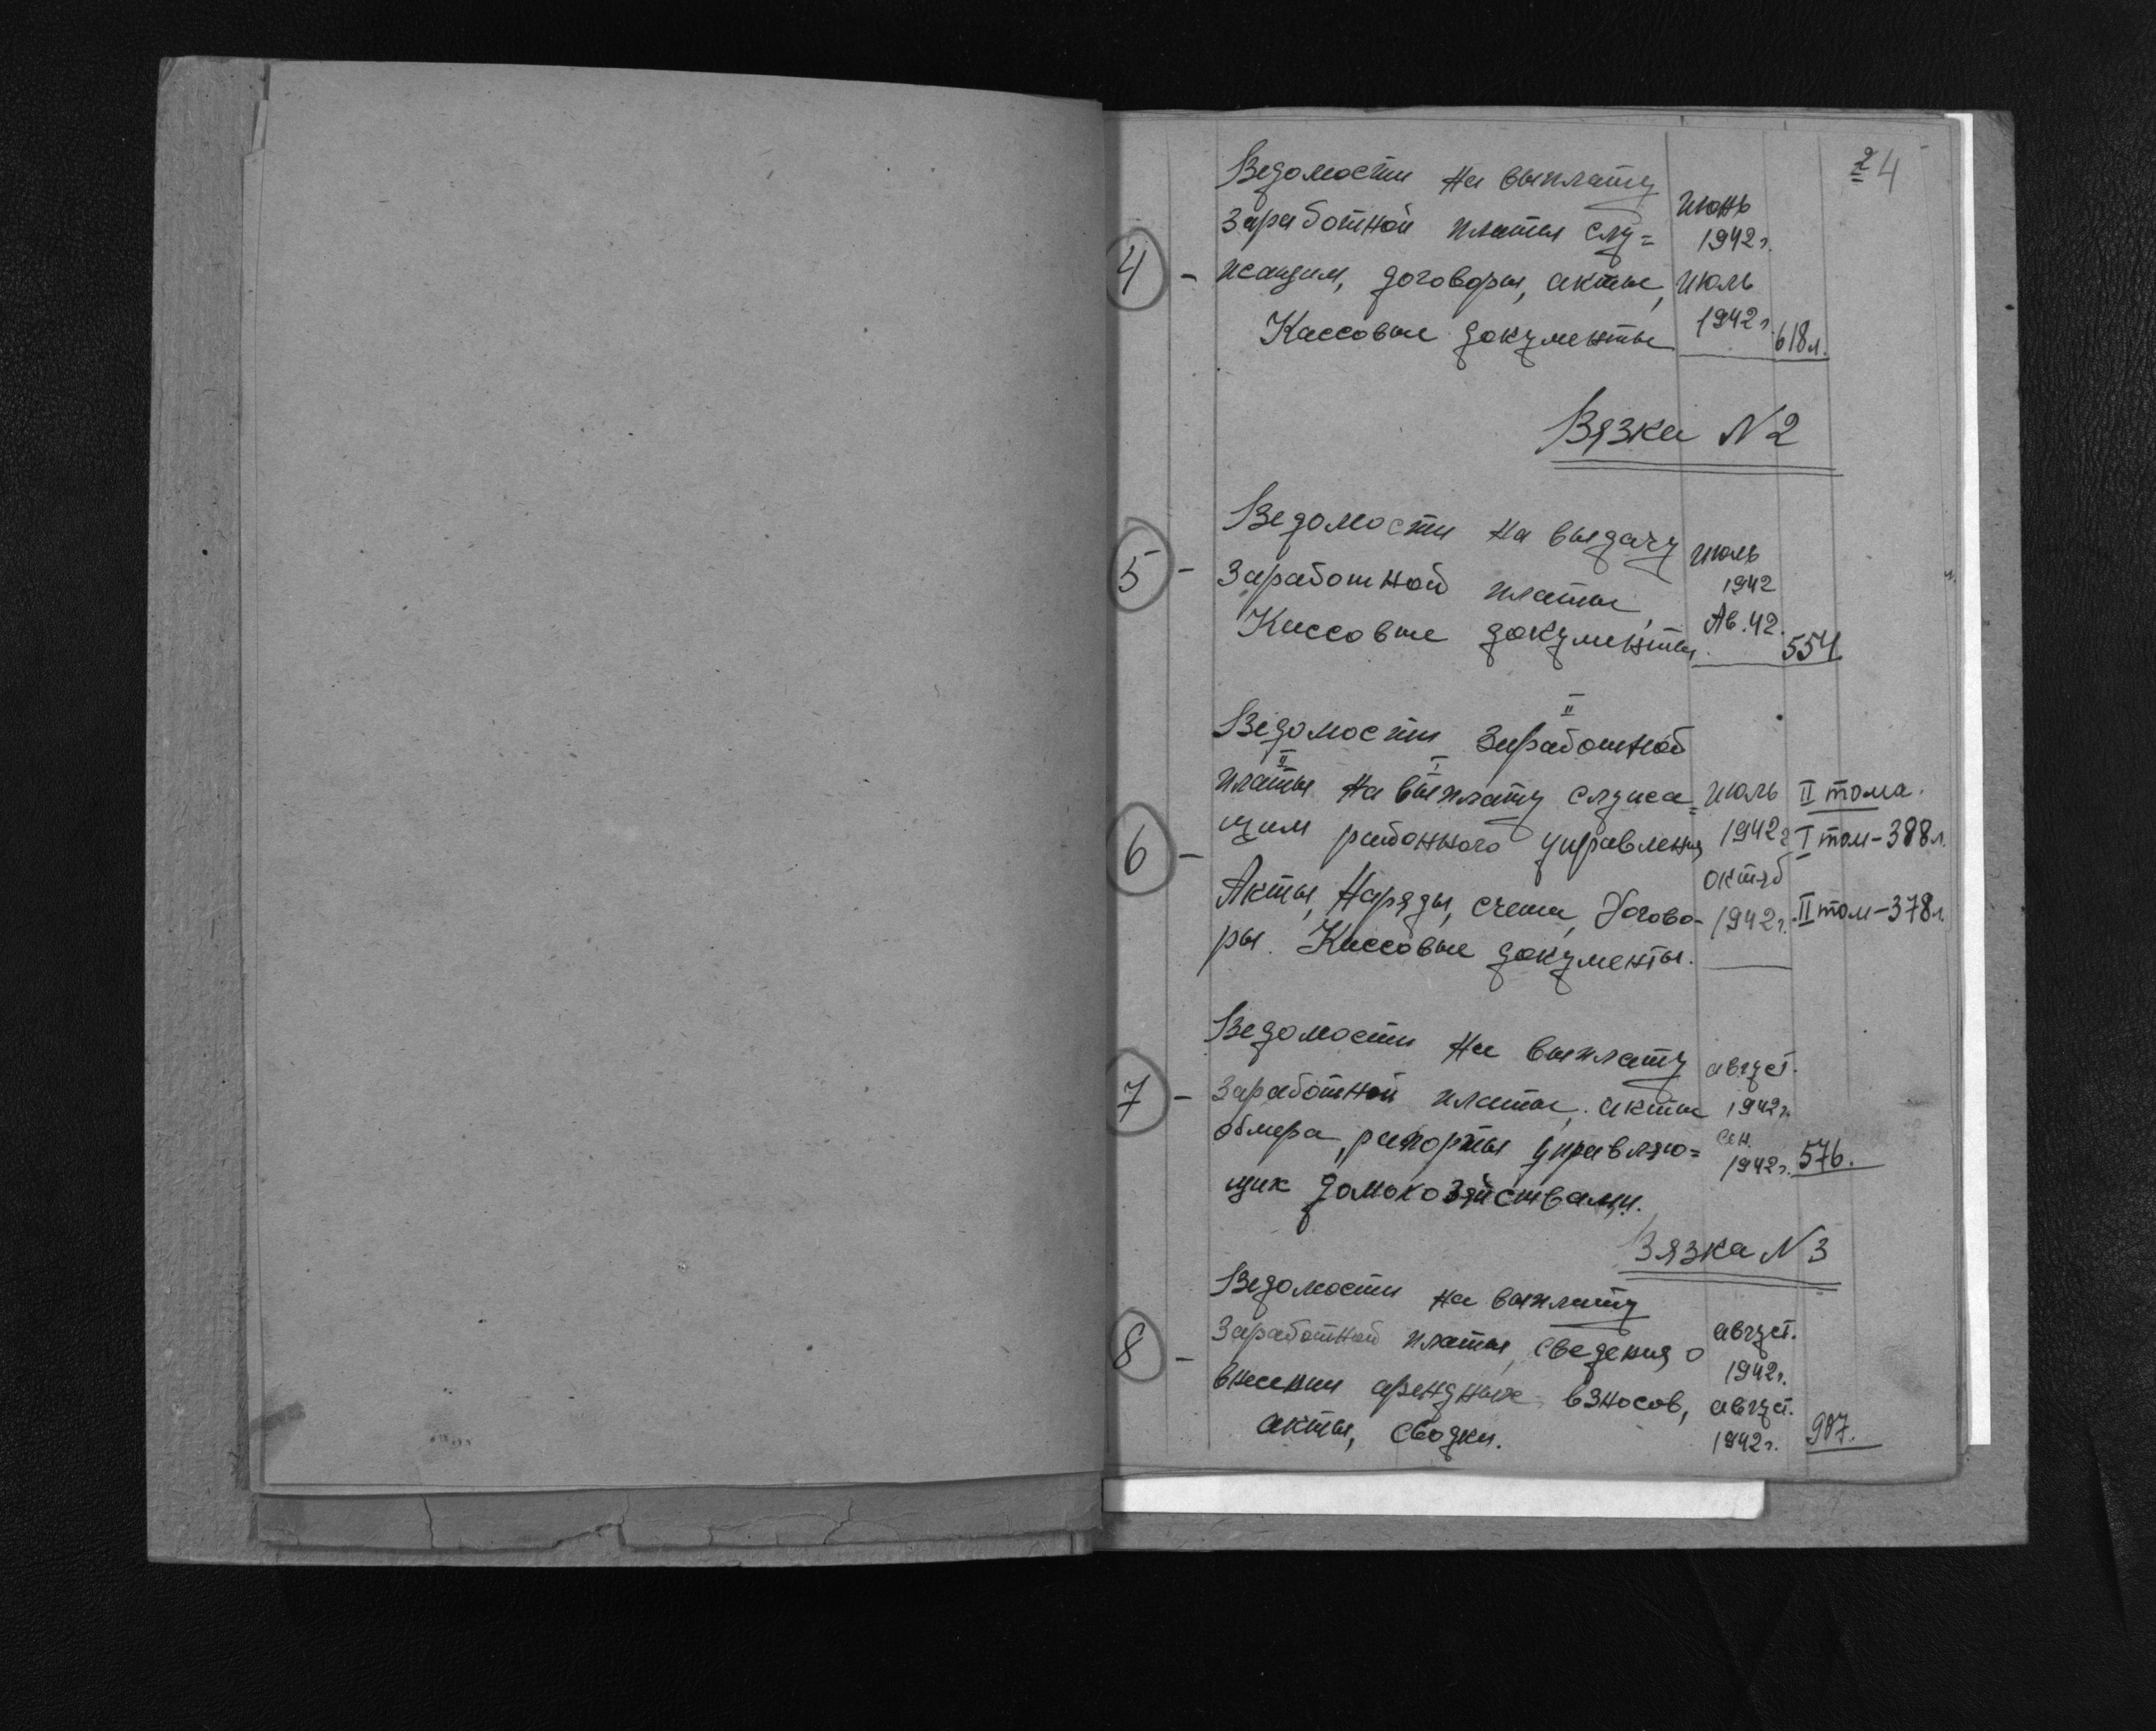 24
Ведомости на выплату
заработной платы слу= июнь 1942 г.
4 - жащим, договоры, акты, июль
Кассовые документы 1942 г. 618 л.
Вязка N 2
Ведомости на выдачу июль
5 - заработной платы, 1942
Кассовые документы. Ав. 42. 554
Ведомости заработной
платы на выплату служа= июль II тома.
6 - щим районного управления 1942 г I том - 388 л.
октяб
Акты, наряды, счета, Догово- 1942 г. II том - 378 л.
ры. Кассовые документы.
Ведомости на выплату август.
7 - заработной платы, акты 1942 г.
обмера, рапорты управляю= сен. 1942 г. 576.
щих домохозяйствами.
Вязка N 3
Ведомости на выплату
8 - заработной платы, сведения о август. 1942 г.
внесении арендных взносов, август.
акты, сводки. 1942 г.